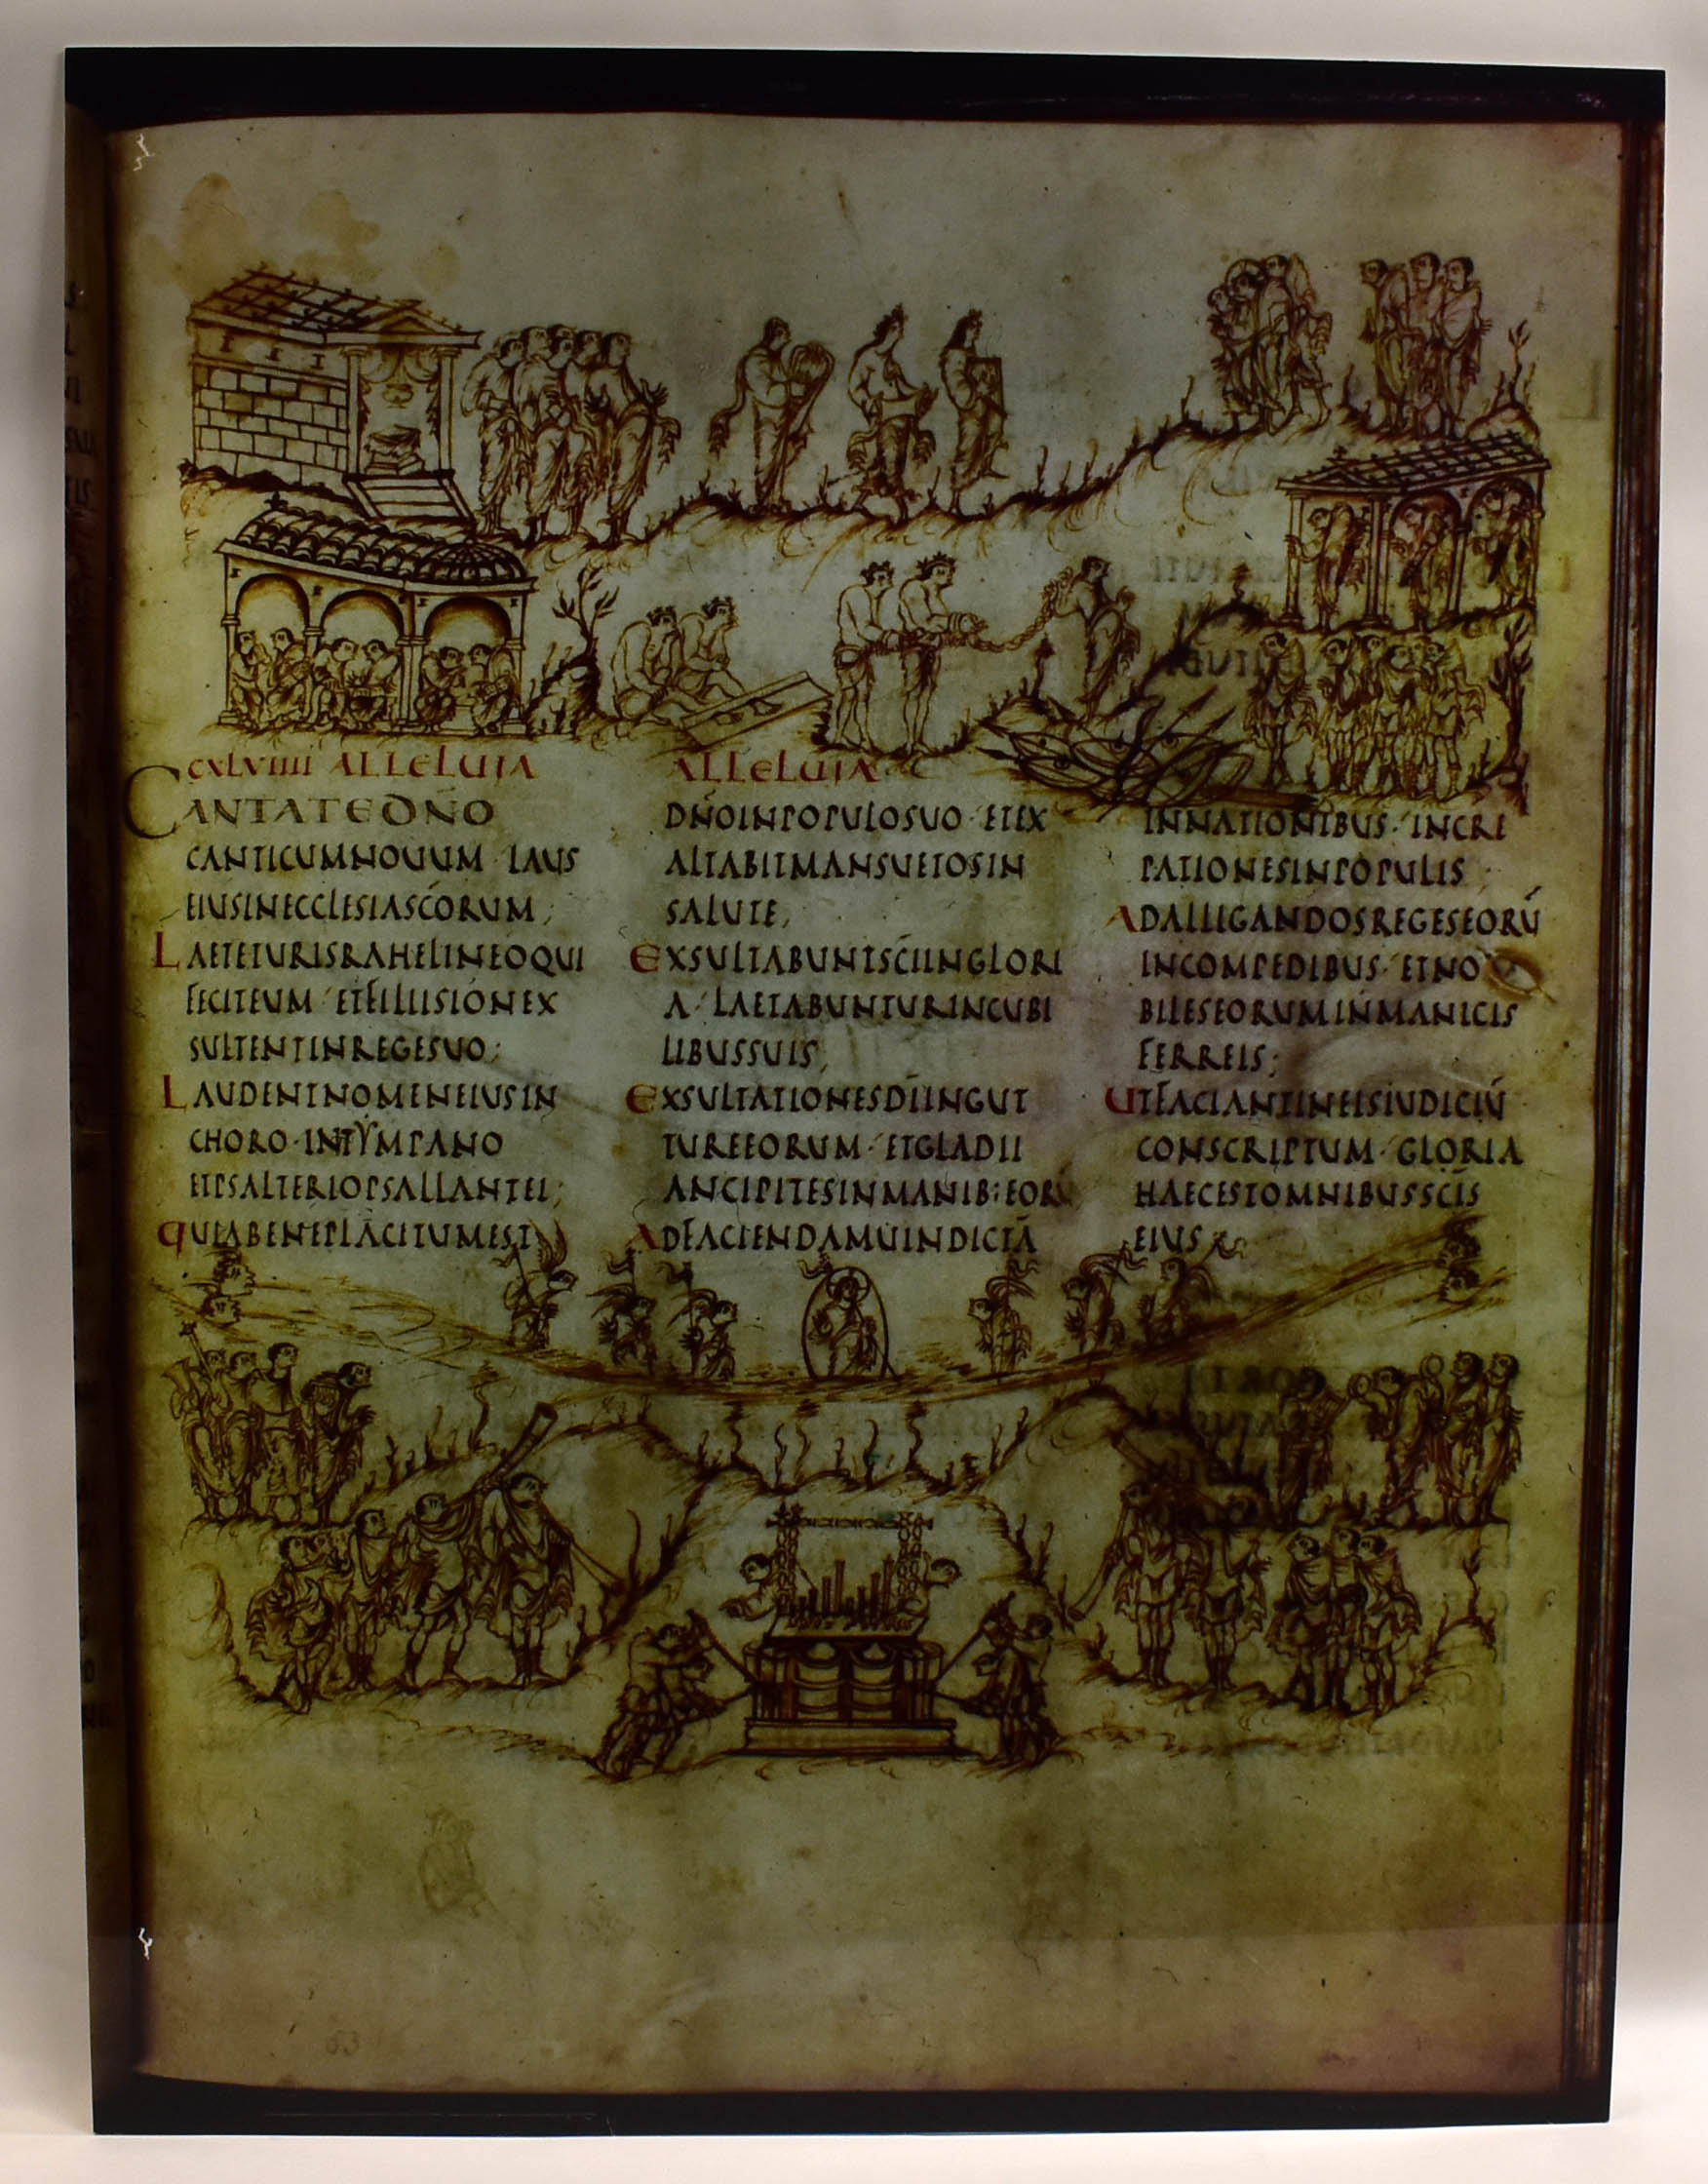 CXLVIIII ALLELUIA
CANTATE DÑO
CANTICUM NOUUM LAUS
EIUS IN ECCLESIA SCŌRUM;
LAETETUR ISRAHEL IN EO QUI
FECIT EUM ET FILII SION EX
SULTENT IN REGE SUO;
LAUDENT NOMEN EIUS IN
CHORO · IN TYMPANO
ET PSALTERIO PSALLANT EI;
QUIA BENEPLACITUM EST
ALLELUIA
DÑO IN POPULO SUO · ET EX
ALTABIT MANSUETOS IN
SALUTE;
EXSULTABUNT SC̄I IN GLORI
A · LAETABUNTUR IN CUBI
LIBUS SUIS;
EXSULTATIONES DĪ IN GUT
TURE EORUM · ET GLADII
ANCIPITES IN MANIB; EORŪ
AD FACIENDAM UINDICTĀ
IN NATIONIBUS · INCRE
PATIONES IN POPULIS
AD ALLIGANDOS REGES EORŪ
IN COMPEDIBUS · ET NO
BILES EORUM IN MANICIS
FERREIS;
UT FACIANT IN EIS IUDICIŪ
CONSCRIPTUM · GLORIA
HAEC EST OMNIBUS SC̄IS
EIUS
63